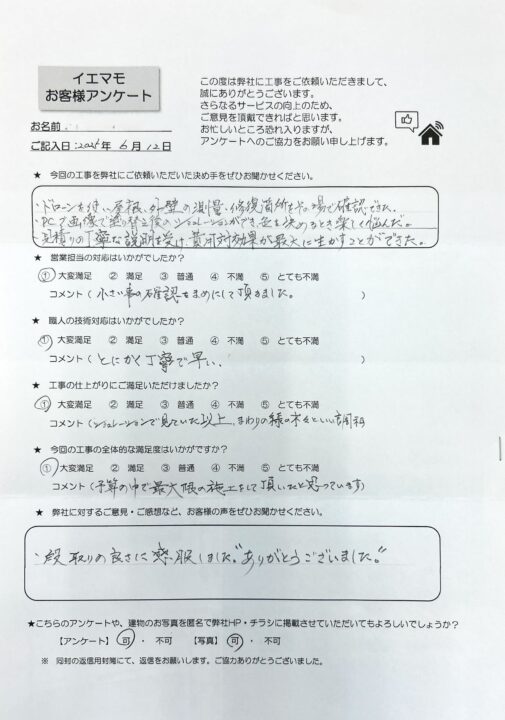 イエマモ
お客様アンケート
この度は弊社に工事をご依頼いただきまして、
誠にありがとうございます。
さらなるサービスの向上のため、
ご意見を頂戴できればと思います。
お忙しいところ恐れ入りますが、
アンケートへのご協力をお願い申し上げます。
お名前
ご記入日:2025年 6月 12日
★ 今回の工事を弊社にご依頼いただいた決め手をぜひお聞かせください。
・ドローンを使い屋根、外壁の測量、修復箇所をその場で確認できた。
・PCで画像で塗り替え後のシュミレーションができ、色を決めるとき楽しく悩んだ。
・見積りの丁寧な説明を受け、費用対効果が最大に生かすことができた。
★ 営業担当の対応はいかがでしたか?
① 大変満足 ② 満足 ③ 普通 ④ 不満 ⑤ とても不満
コメント ( 小さい事の確認をまめにして頂きました。 )
★ 職人の技術対応はいかがでしたか?
① 大変満足 ② 満足 ③ 普通 ④ 不満 ⑤ とても不満
コメント ( とにかく丁寧で早い. )
★ 工事の仕上がりにご満足いただけましたか?
① 大変満足 ② 満足 ③ 普通 ④ 不満 ⑤ とても不満
コメント ( シュミレーションで見ていた以上、まわりの緑の木々といい調和
★ 今回の工事の全体的な満足度はいかがですか?
① 大変満足 ② 満足 ③ 普通 ④ 不満 ⑤ とても不満
コメント (予算の中で最大限の施工をして頂いたと思っています)
★ 弊社に対するご意見・ご感想など、お客様の声をぜひお聞かせください。
・段取りの良さに感服しました。"ありがとうございました。"
★こちらのアンケートや、建物のお写真を匿名で弊社HP・チラシに掲載させていただいてもよろしいでしょうか?
【アンケート】 可 ・ 不可 【写真】 可 ・ 不可
※ 同封の返信用封筒にて、返信をお願いします。ご協力ありがとうございました。